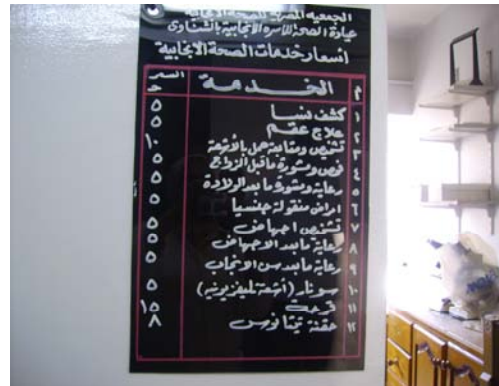 الجمعيه المصرية للصحة الانجابية
عيادة الصحة الاسره الانجابية بالشناوى
اسعار خدمات الصحة الانجابية
م الخدمة السعر
ح
١ كشف نسا ٥
٢ علاج عقم ٥
٣ تشخيص ومتابعة حمل بالأشعة ١٠
٤ فحص ومشورة ماقبل الزواج ٥
٥ رعاية ومشورة ما بعد الولادة ٥
٦ امراض منقولة جنسيا
٧ تشخيص اجهاض ٥
٨ رعاية ما بعد الاجهاض ٥
٩ رعاية ما بعد سن الانجاب ٥
١٠ سونار (أشعة تليفزيونيه) ٥
١١ قرحة ١٥
١٢ حقنة تيتانوس ٨